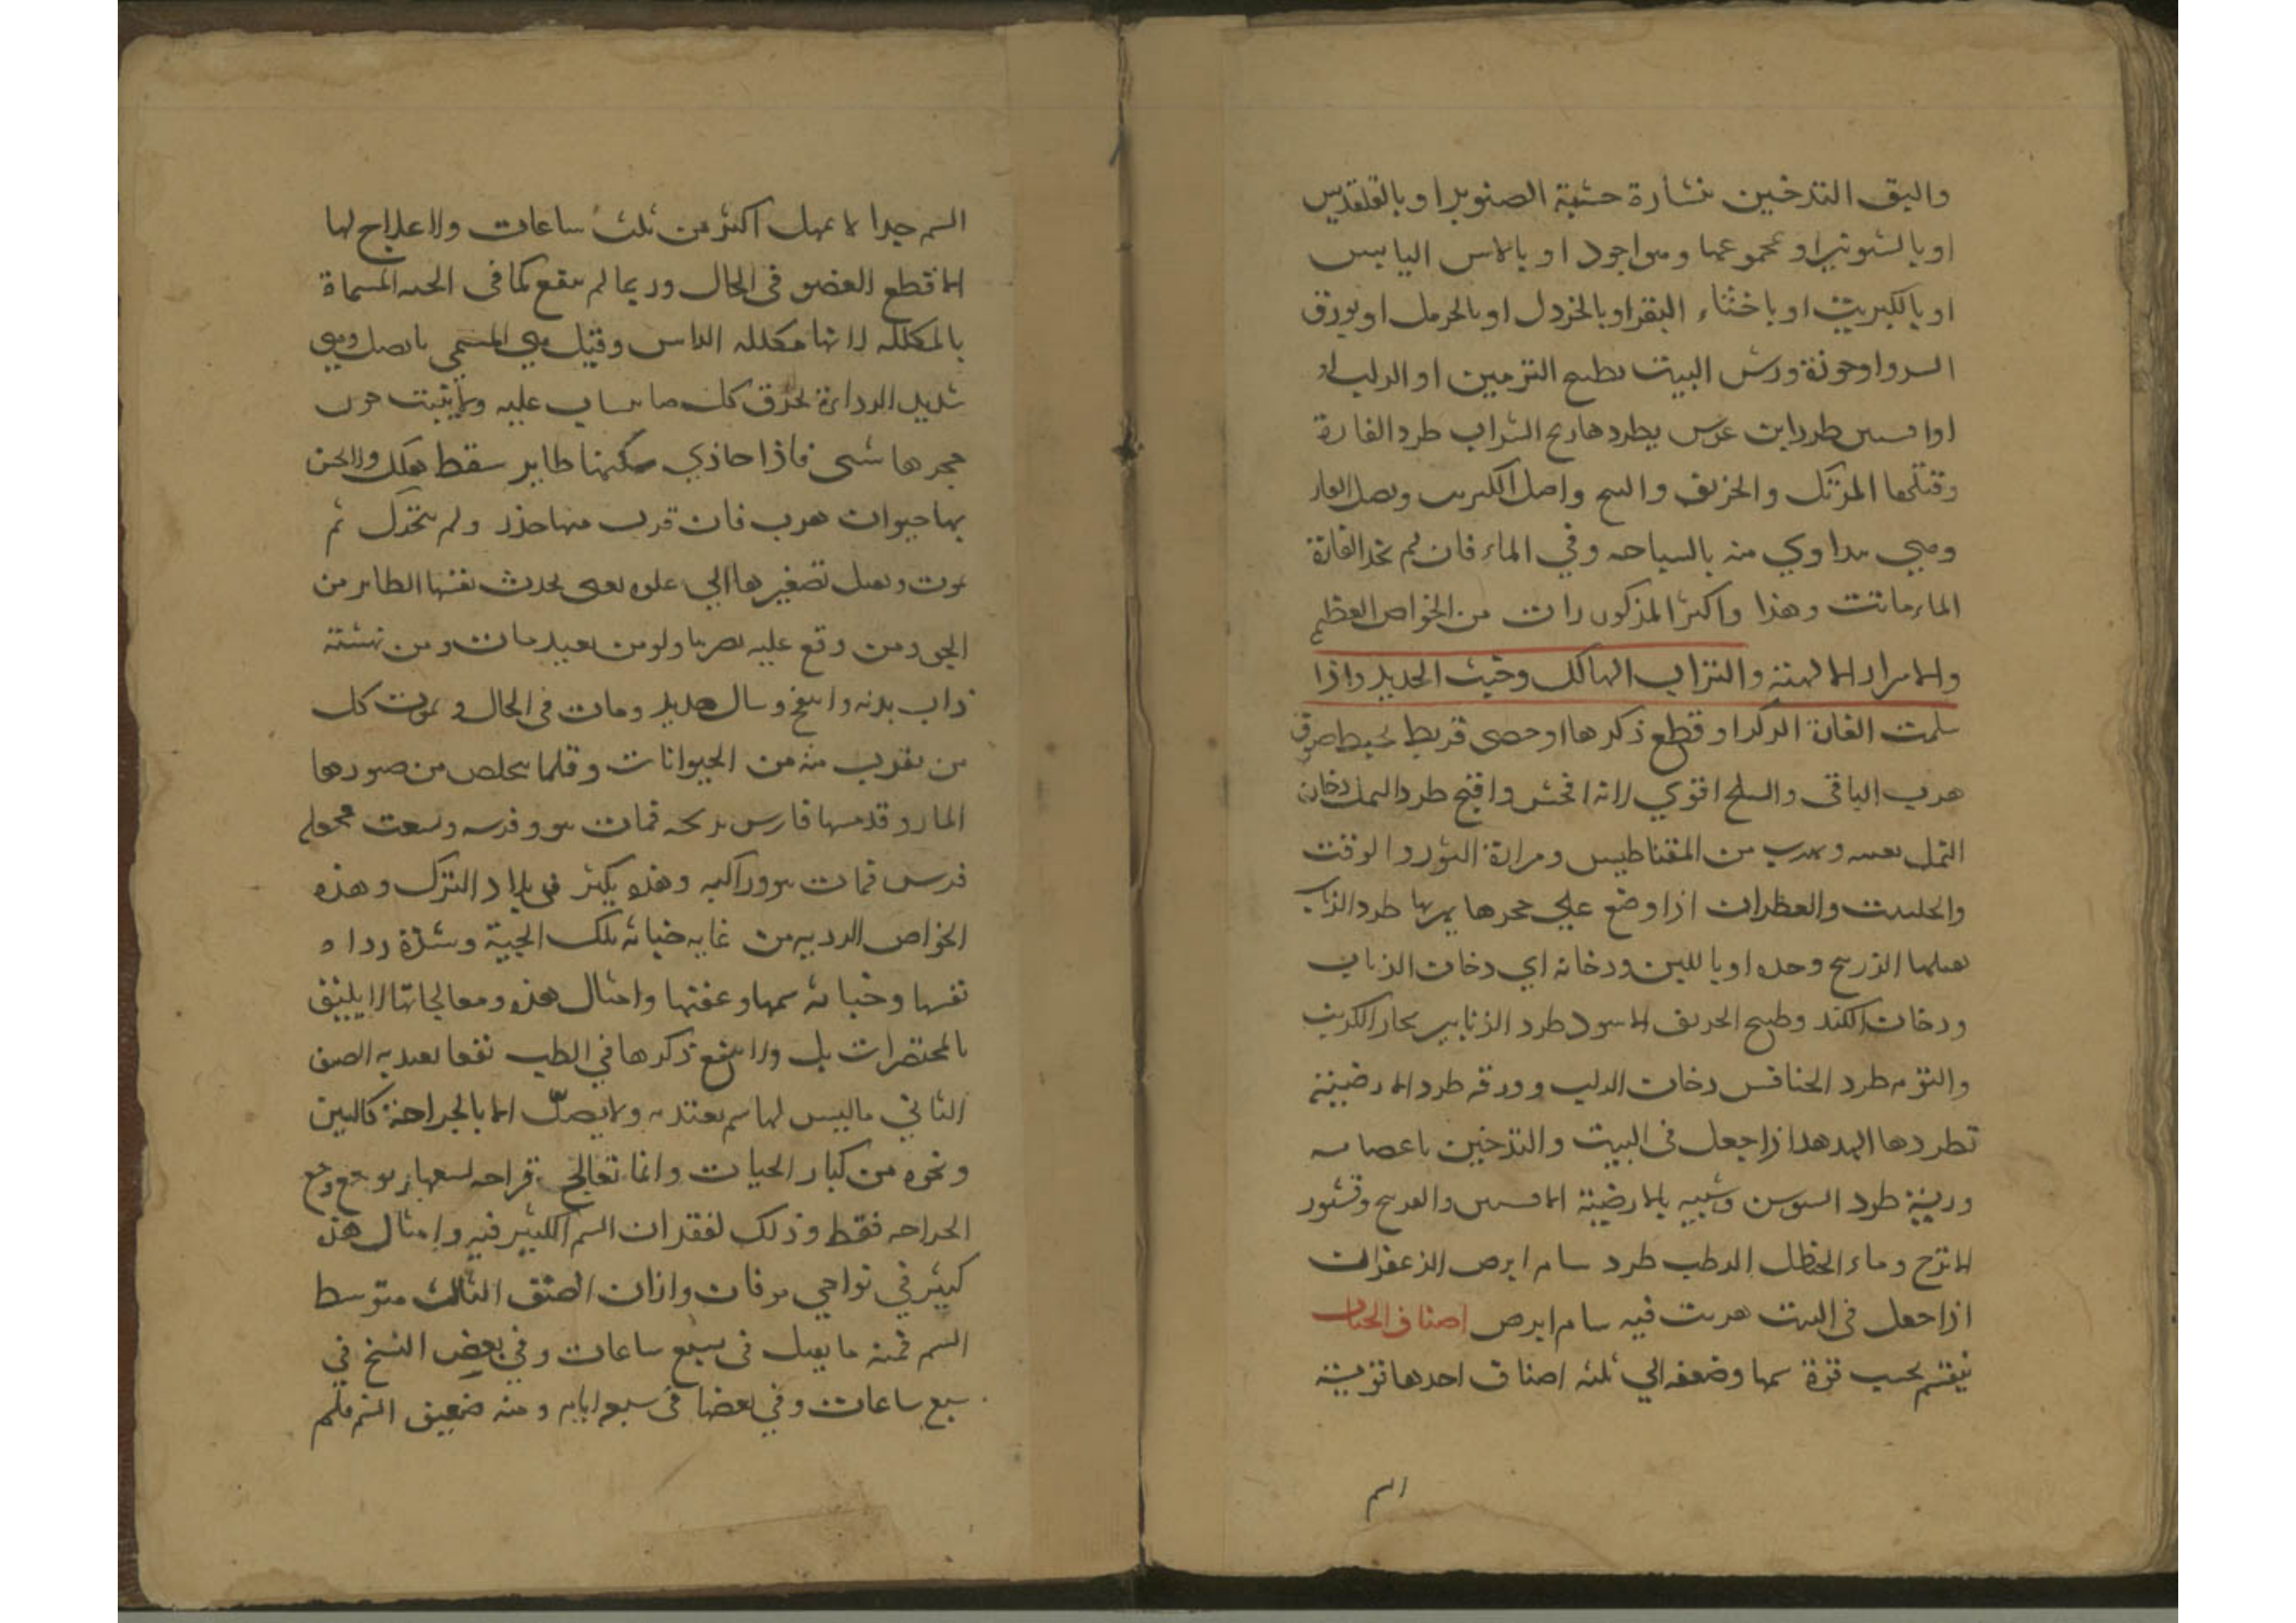 والبق التدخين بنشارة خشبة الصنوبر او بالقلقديس
او بالشونيز او بمجموعها وهو اجود او بالاس اليابس
او بالكبريت او باخثاء البقر او بالخردل او بالحرمل او بورق
السرو او جوزة ورش البيت بطبيخ الترمس او الدلب او
او افسنتين طرد ابن عرس يطردها ريح السداب طرد الفارة
وقتلها المرتك والخربق والبنج واصل الكبريت وبصل الفار
وهي تداوي منه بالسباحه وفي الماء فان لم تجد الفارة
الماء ماتت وهذا واكثر المذكورات من الخواص العظيم
والاسرار الالهية والتراب الهالك وخبث الحديد واذا
سلخت الفارة الذكر او قطع ذكرها او خصي وربط بخيط صوف
هرب الباقي والسلخ اقوي لانه افحش واقبح طرد النمل دخان
النمل نفسه ويهرب من المقناطيس ومرارة الثور والزفت
والحلتيت والقطران اذا وضع علي جحرها يهربها طرد الذباب
يقتلها الزرنيخ وحده او باللبن ودخانه اي دخان الذباب
ودخان الكندر وطبيخ الخربق الاسود طرد الزنابير بخار الكبريت
والثوم طرد الخنافس دخان الدلب وورقه طرد الارضية
تطردها الهدهد اذا جعل في البيت والتدخين باعضائه
وريشه طرد السوس وشبيه بالارضية الافسنتين والفودنج وقشور
الاترج وماء الحنظل الرطب طرد سام ابرص الزعفران
اذا جعل في البيت هربت فيه سام ابرص اصناف الحيات
ينقسم بحسب قوة سمها وضعفه الي ثلثه اصناف احدها قوية
السم
السم جدا لا يمهل اكثر من ثلث ساعات ولا علاج لها
الا قطع العضو في الحال وربما لم ينفع كما في الحيه المسماة
بالمكلله لانها مكلله الراس وقيل هي المسمي باصل وهي
شديد الرداءة تحرق كل ما ينساب عليه ولا ينبت حول
جحرها شي فاذا حاذي مسكنها طاير سقط هلك ولا يحس
بها حيوان هرب فان قرب منها خدر ولم يتحرك ثم
يموت ويقتل بصفيرها الي علوه يعني يحدث نفسها الطاير من
الجو ومن وقع عليه بصرها ولو من بعيد مات ومن نهشته
ذاب بدنه وانتفخ وسال صديد ومات في الحال ويموت كل
من يقرب منه من الحيوانات وقلما يتخلص من ضررها
المار وقد مسها فارس برمحه فمات هو وفرسه ولسعت جحفله
فرس فمات هو وراكبه وهذه يكثر في بلاد الترك وهذه
الخواص الرديه من غايه خباثه تلك الحية وشدة رداءة
نفسها وخباثه سمها وعفنها وامثال هذه ومعالجاتها لا يليق
بالمختصرات بل ولا ينفع ذكرها في الطب نفعا يعتد به الصنف
الثاني ما ليس لها سم يعتد به ولا يضر الا بالجراحة كالتنين
ونحوه من كبار الحيات وانما تعالج قراحه لسعها بوجع وجع
الجراحه فقط وذلك لفقدان السم الكثير فيه وامثال هذه
كثير في نواحي موقان واران الصنف الثالث متوسط
السم فمنه ما يقتل في سبع ساعات وفي بعض النسخ في
سبع ساعات وفي بعضها في سبعه ايام ومنه ضعيف السم فلم